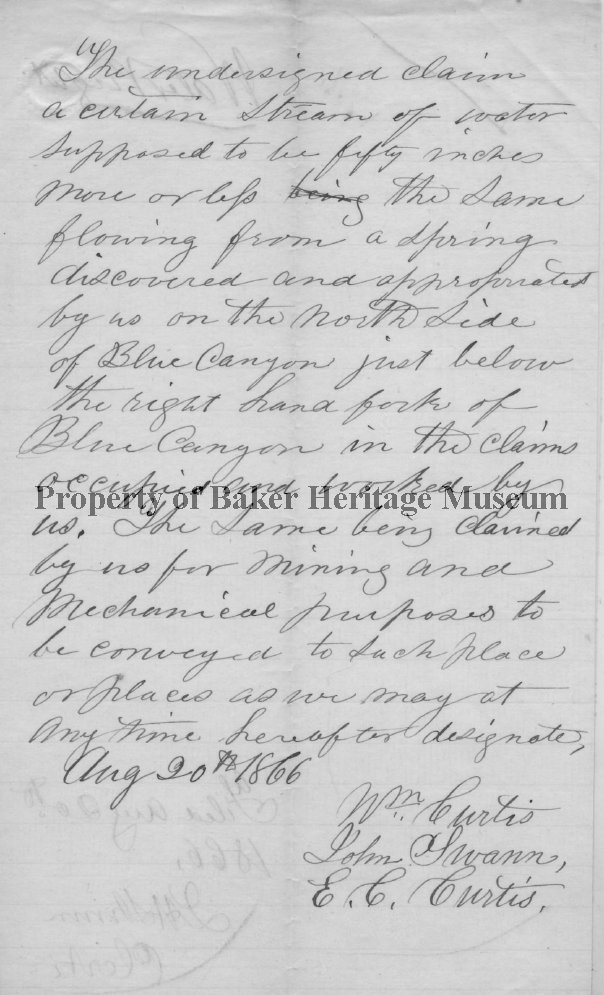 "The undersigned claim
a certain stream of water
supposed to be fifty inches
more or less being the same
flowing from a spring
discovered and appropriated
by us on the north side
of Blue Canyon just below
the right hand fork of
Blue Canyon in the claims
occupied and worked by
Property of Baker Heritage Museum
us. The same being claimed
by us for mining and
Mechanical purposes to
be conveyed to such place
or places as we may at
any time hereafter designate,
Aug 20th 1866
Wm. Curtis
John Swann,
E. C. Curtis.
Filed Aug 20th
1866,
Clerk